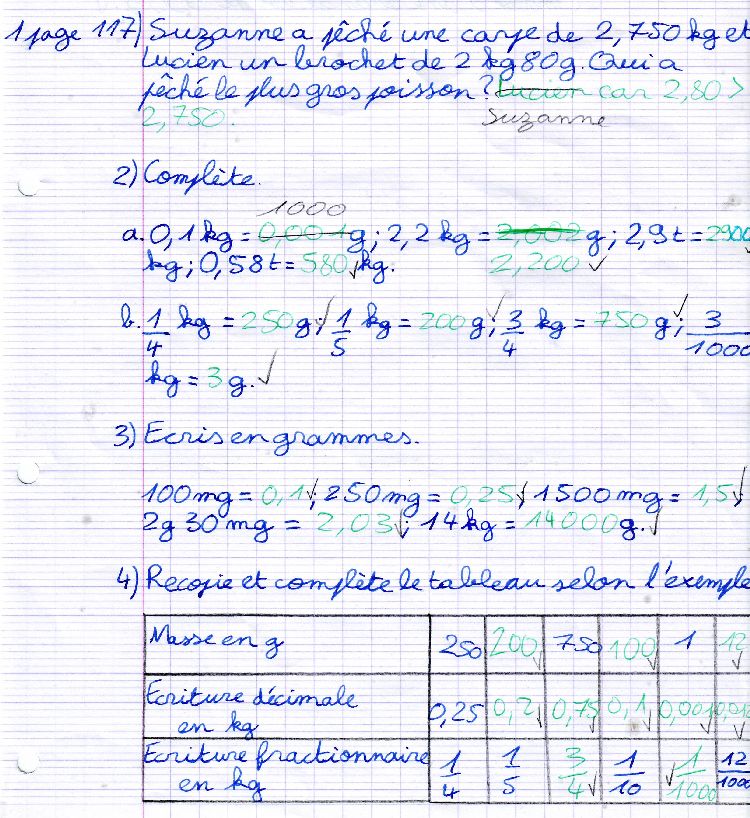 1 page 117) Suzanne a pêché une carpe de 2,750 kg et
Lucien un brochet de 2 kg 80g. Qui a
pêché le plus gros poisson ? Lucien car 2,80 >
2,750. Suzanne
2) Complète.
1000
a. 0,1 kg = 0,001 g ; 2,2 kg = 2,002 g ; 2,9 t = 2900
kg ; 0,58 t = 580 kg. 2,200 ✓
b. 1/4 kg = 250 g ; 1/5 kg = 200 g ; 3/4 kg = 750 g ; 3/1000
kg = 3 g. ✓
3) Ecris en grammes.
100 mg = 0,1 ; 250 mg = 0,25 ; 1500 mg = 1,5
2g 30 mg = 2,03 ; 14 kg = 14000 g.
4) Recopie et complète le tableau selon l'exemple
Masse en g 250 200 750 100 1 12
Ecriture décimale 0,25 0,2 0,75 0,1 0,001 0,012
en kg
Ecriture fractionnaire 1/4 1/5 3/4 1/10 1/1000 12/1000
en kg